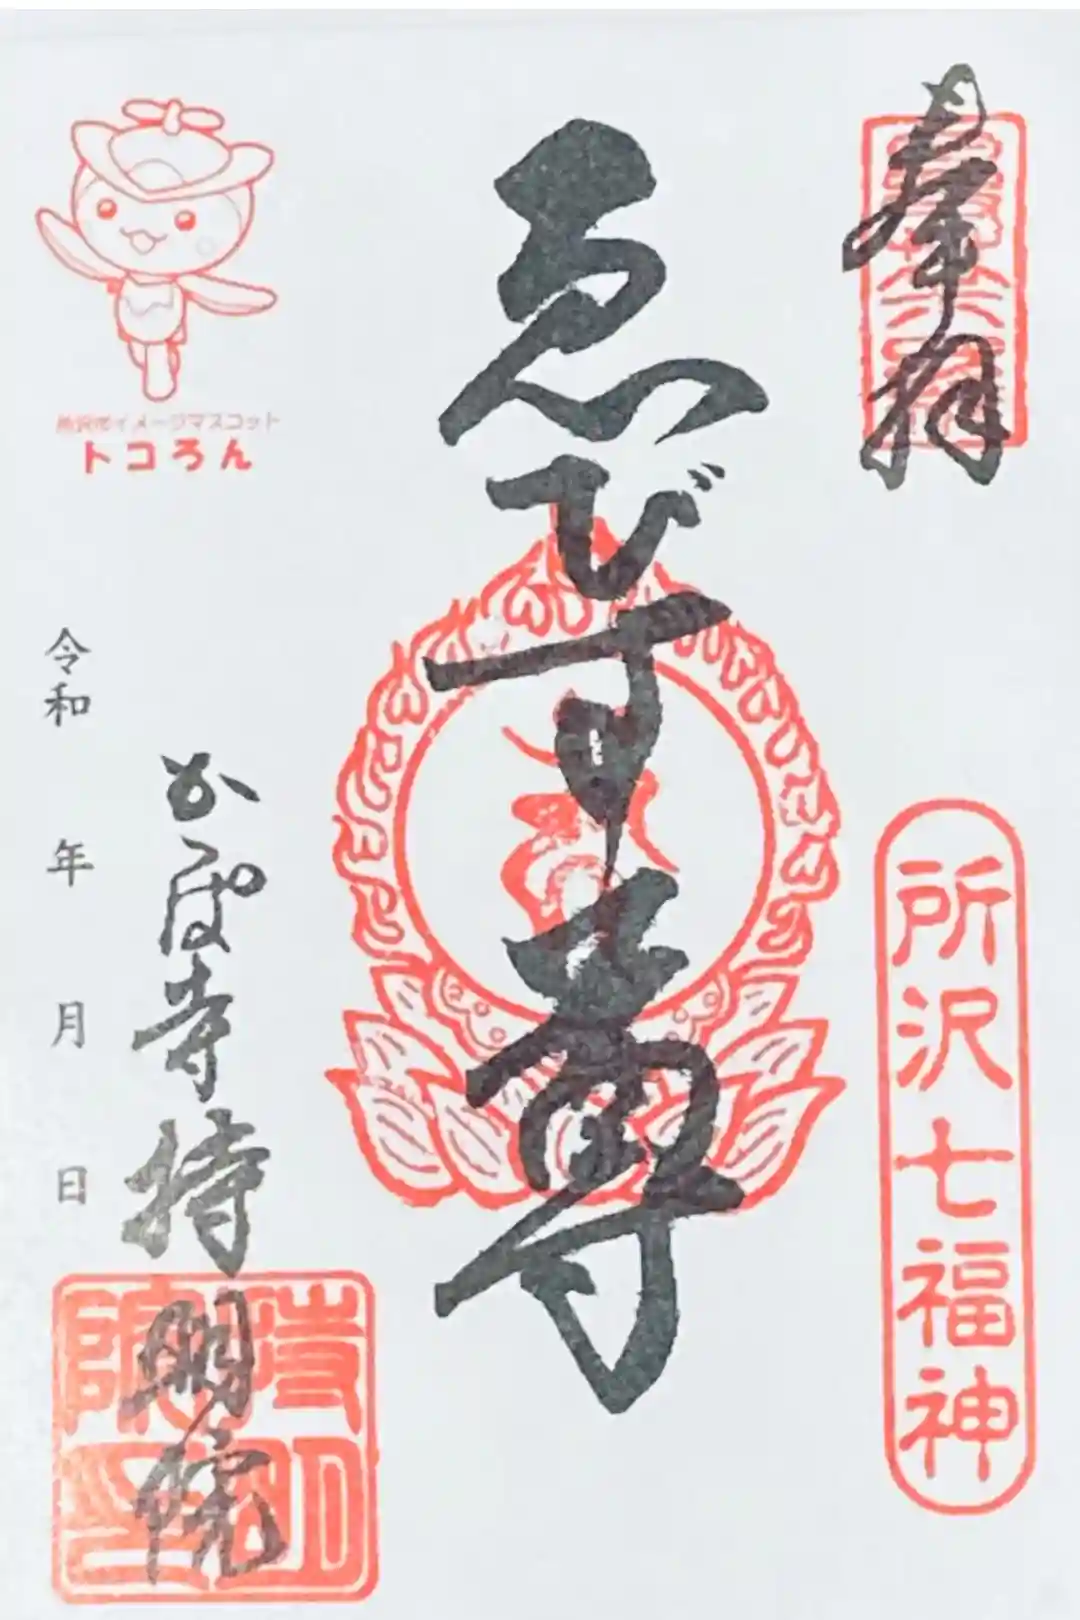 奉拝
所沢七福神
ゑびす尊
所沢市イメージマスコット
トコろん
かっぱ寺持明院
令和 年 月 日
持明院